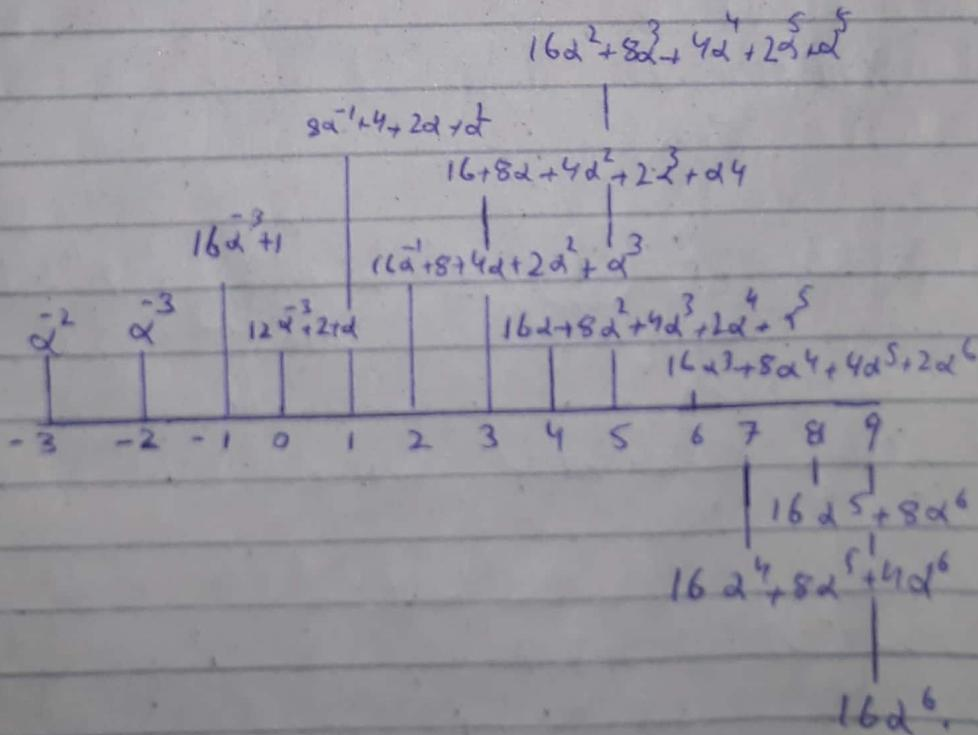 16α² + 8α³ + 4α⁴ + 2α⁵ + α⁵
8α⁻¹ + 4 + 2α + α²
16 + 8α + 4α² + 2α³ + α4
16α⁻³ + 1
16α⁻¹ + 8 + 4α + 2α² + α³
α⁻² α⁻³ 12α⁻³ + 2 + α 16α + 8α² + 4α³ + 2α⁴ +
16α³ + 8α⁴ + 4α⁵ + 2α⁶
-3 -2 -1 0 1 2 3 4 5 6 7 8 9
16α⁵ + 8α⁶
16α⁴ + 8α⁵ + 4α⁶
16α⁶.